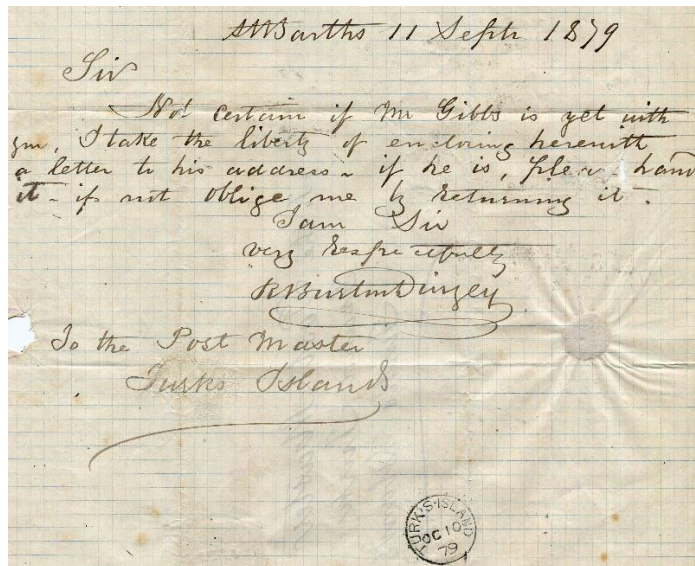 St Barths 11 Septr 1879
Sir
Not certain if Mr Gibbs is yet with
you, I take the liberty of enclosing herewith
a letter to his address - if he is, please hand
it - if not oblige me by returning it.
I am Sir
very respectfully
R Burton Dinzey
To the Post Master
Turks Islands
TURK'S-ISLAND
OC 10
79